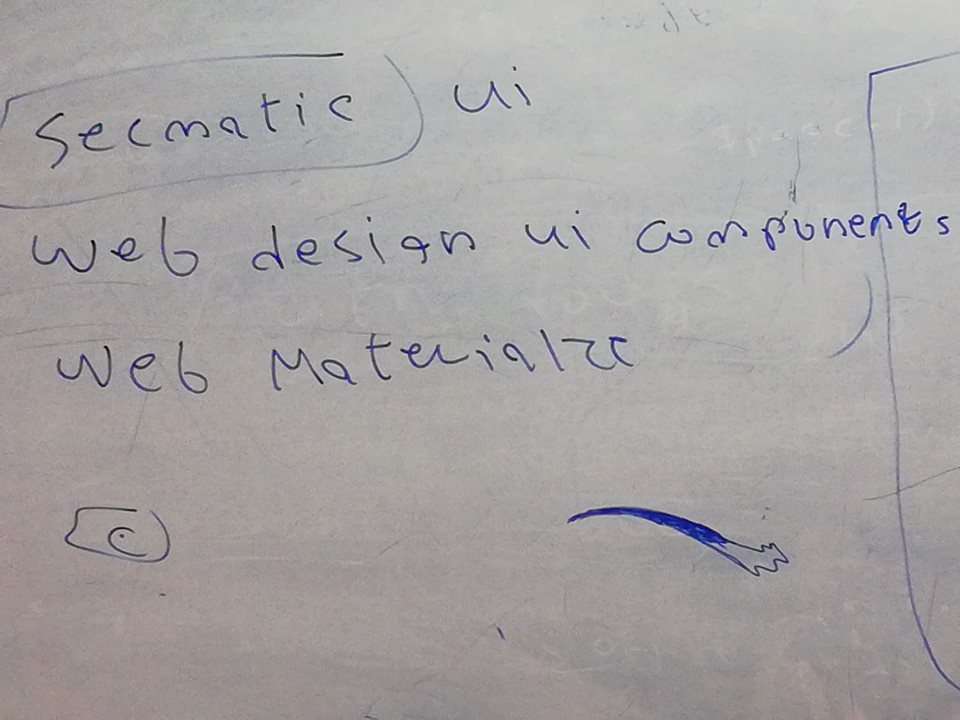 Secmatic ui
web design ui components
Web Materialze
c